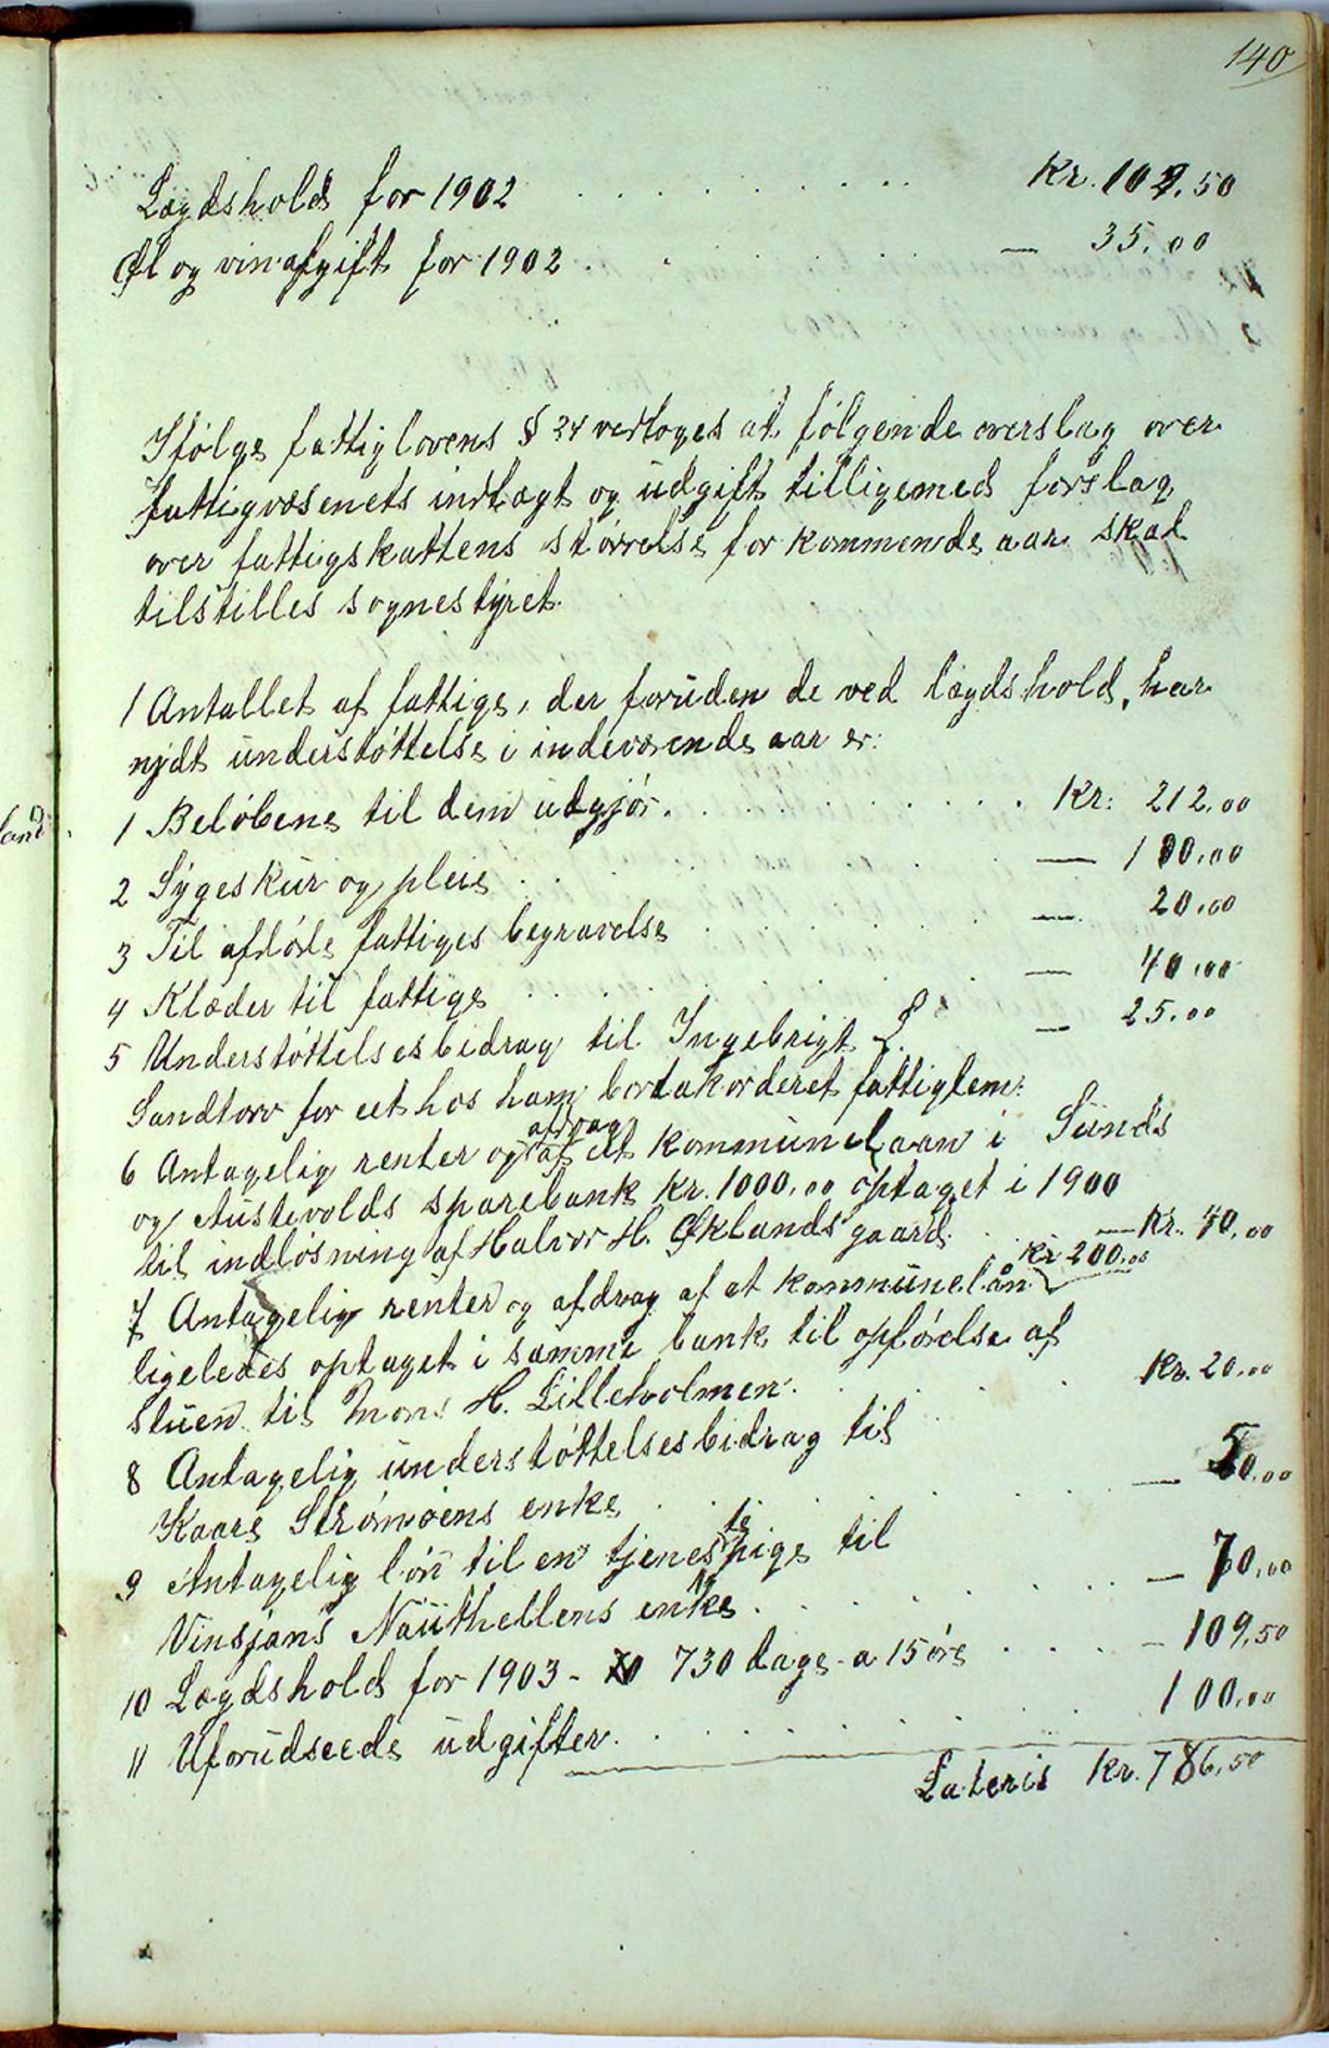 140
Lægdshold for 1902 . . . . . . . . . . Kr. 109.50
Øl og vinafgift for 1902 . . . . . . . — 35.00
Ifølge fattiglovens § 34 vedtoges at følgende overslag over
fattigvæsenets indtægt og udgift tilligemed forslag
over fattigskattens størrelse for kommende aar skal
tilstilles sognestyret.
1 Antallet af fattige, der foruden de ved lægdshold, har
nydt understøttelse i indeværende aar er:
1 Beløbene til dem udgjør . . . . . . . . . Kr: 212.00
land
2 Sygeskur og pleie . . . . . — 100.00
3 Til afdøde fattiges begravelse . . . . . . —. 20.00
4 Klæder til fattige . . . . . . . . — 40.00
5 Understøttelsesbidrag til Ingebrigt L. — 25.00
Sandtorv for eet hos ham bortakorderet fattiglem:
6 Antagelig renter og afdrag af et kommunelaan i Sunds
og Austevolds sparebank Kr. 1000.00 optaget i 1900
til indløsning af Halvor H. Øklandsgaard. . . — Kr. 40.00
7 Antagelig renter og afdrag af et kommunelån Kr 200.00
ligeledes optaget i samme bank til opførelse af
stuen til Mons H. Lilleholmen . . . . . . Kr. 20.00
8 Antagelig understøttelsesbidrag til
Kaare Strømøens enke . . . . . . . . — 50.00
9 Antagelig løn til en tjenestepige til
Vinsjans Nauthellens enke . . . . . . . — 70.00
10 Lægdshold for 1903 - 730 dage a 15 øre . . . . — 109.50
11 Uforudseede udgifter . . . . . . . . . 100.00
Lateris Kr. 786.50